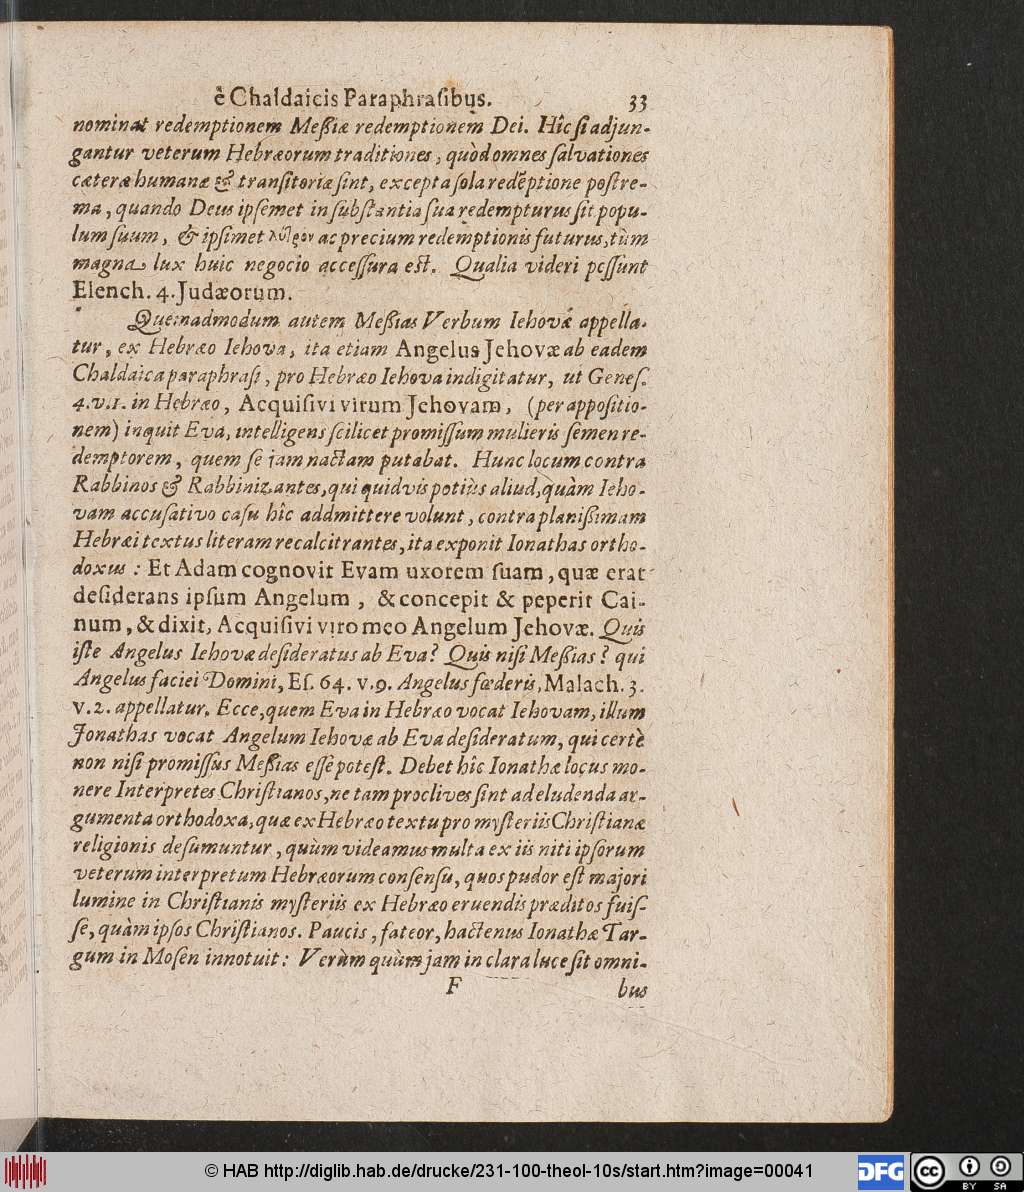 è Chaldaicis Paraphrasibus. 33
nominat redemptionem Meßiæ redemptionem Dei. Hîc si adjun-
gantur veterum Hebræorum traditiones, quòd omnes salvationes
cæteræ humanæ & transitoriæ sint, excepta sola redẽptione postre-
ma, quando Deus ipsemet in substantia sua redempturus sit popu-
lum suum, & ipsimet λύτρον ac precium redemptionis futurus, tùm
magna lux huic negocio accessura est. Qualia videri possunt
Elench. 4. Judæorum.
Quemadmodum autem Meßias Verbum Iehovæ appella-
tur, ex Hebræo Iehova, ita etiam Angelus Jehovæ ab eadem
Chaldaica paraphrasi, pro Hebræo Iehova indigitatur, ut Genes.
4. v. 1. in Hebræo, Acquisivi virum Jehovam, (per appositio-
nem) inquit Eva, intelligens scilicet promissum mulieris semen re-
demptorem, quem se jam nactam putabat. Hunc locum contra
Rabbinos & Rabbinizantes, qui quidvis potiùs aliud, quàm Ieho-
vam accusativo casu hîc addmittere volunt, contra planißimam
Hebræi textus literam recalcitrantes, ita exponit Ionathas ortho-
doxus: Et Adam cognovit Evam uxorem suam, quæ erat
desiderans ipsum Angelum, & concepit & peperit Cai-
num, & dixit, Acquisivi viro meo Angelum Jehovæ. Quis
iste Angelus Iehovæ desideratus ab Eva? Quis nisi Meßias? qui
Angelus faciei Domini, Es. 64. v. 9. Angelus fœderis, Malach. 3.
v. 2. appellatur. Ecce, quem Eva in Hebræo vocat Iehovam, illum
Jonathas vocat Angelum Iehovæ ab Eva desideratum, qui certè
non nisi promissus Meßias esse potest. Debet hîc Ionathæ locus mo-
nere Interpretes Christianos, ne tam proclives sint ad eludenda ar-
gumenta orthodoxa, quæ ex Hebræo textu pro mysteriis Christianæ
religionis desumuntur, quùm videamus multa ex iis niti ipsorum
veterum interpretum Hebræorum consensu, quos pudor est majori
lumine in Christianis mysteriis ex Hebræo eruendis præditos fuis-
se, quàm ipsos Christianos. Paucis, fateor, hactenus Ionathæ Tar-
gum in Mosen innotuit: Verùm quùm jam in clara luce sit omni-
F bus
© HAB http://diglib.hab.de/drucke/231-100-theol-10s/start.htm?image=00041
DFG
cc BY SA